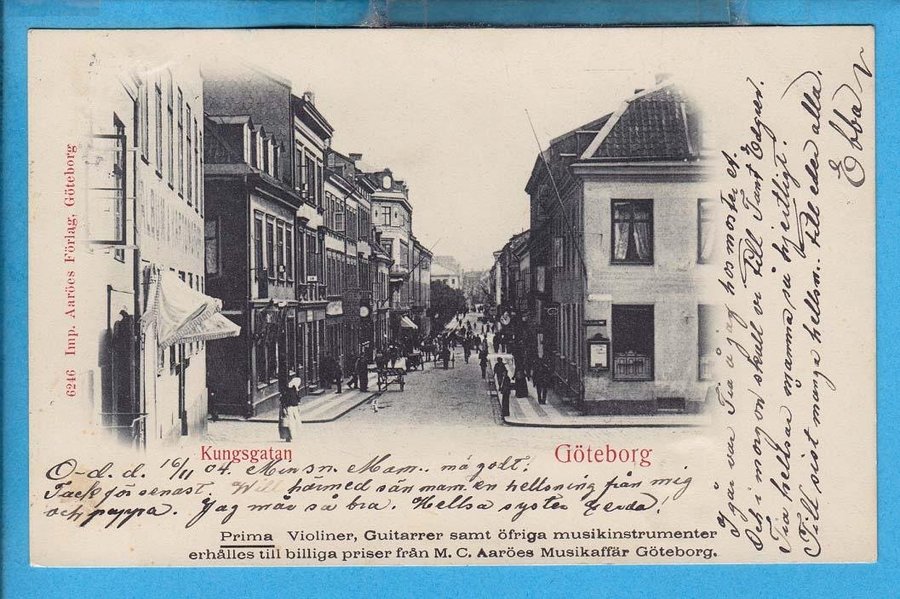 6246 Imp. Aaröes Förlag, Göteborg
Kungsgatan
Göteborg
O-d. d. 16/11 04. Min sn. Mam.. må godt.
Tack för senast. Will härmed sän mam. en hellsning från mig
och pappa. Jag mår så bra. Hellsa syster Gerda!
Prima Violiner, Guitarrer samt öfriga musikinstrumenter
erhålles till billiga priser från M. C. Aaröes Musikaffär Göteborg.
Igår var Tia å jag hos moster A
Och i morgon skull vi till Tant Elgér.
Tia hellsar mamma så hjertligt.
Till sist många hellsn.. till eder alla.
Ebba